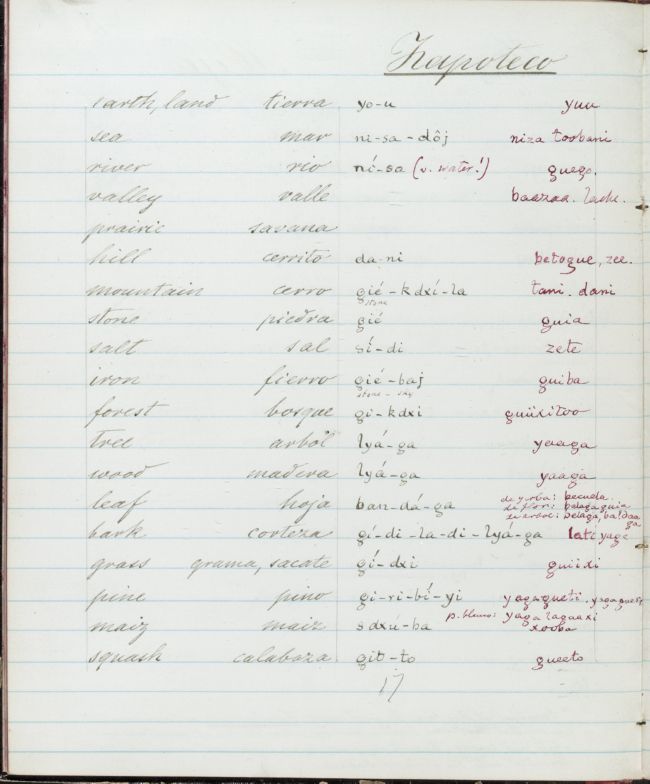 Zapoteco
earth, land tierra yo-u yuu
sea mar ni-sa-dôj niza toobani
river rio ní-sa (v. water!) guego.
valley valle baazaa. lache.
prairie savana
hill cerrito da-ni betogue, zee.
mountain cerro gié-kdxí-la tani. dani
stone
stone piedra gié guia
salt sal sí-di zete
iron fierro gié-baj guiba
stone - sky
forest bosque gi-kdxi guiixitoo
tree arból lyá-ga yaaga
wood madera lyá-ga yaaga
de yerba: becuela.
leaf hoja ban-dá-ga de flor: belagaguia
de arbol: belaga, baldaa
ga
bark corteza gí-di-la-di-lyá-ga lati yaga
grass grama, sacate gí-dxi guiixi
pine pino gi-ri-bí-yi yagagueti. yagaguere
p. blanco: yaga lagaaxi
maiz maiz sdxú-ba xooba
squash calabaza git-to gueeto
17